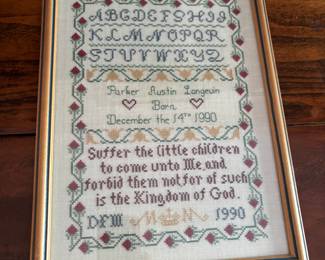 ABCDEFGHIJ
KLMNOPQR
STUVWXYZ
Parker Austin Langevin
Born
December the 14TH 1990
Suffer the little children
to come unto Me, and
forbid them not for of such
is the Kingdom of God.
DFM 1990